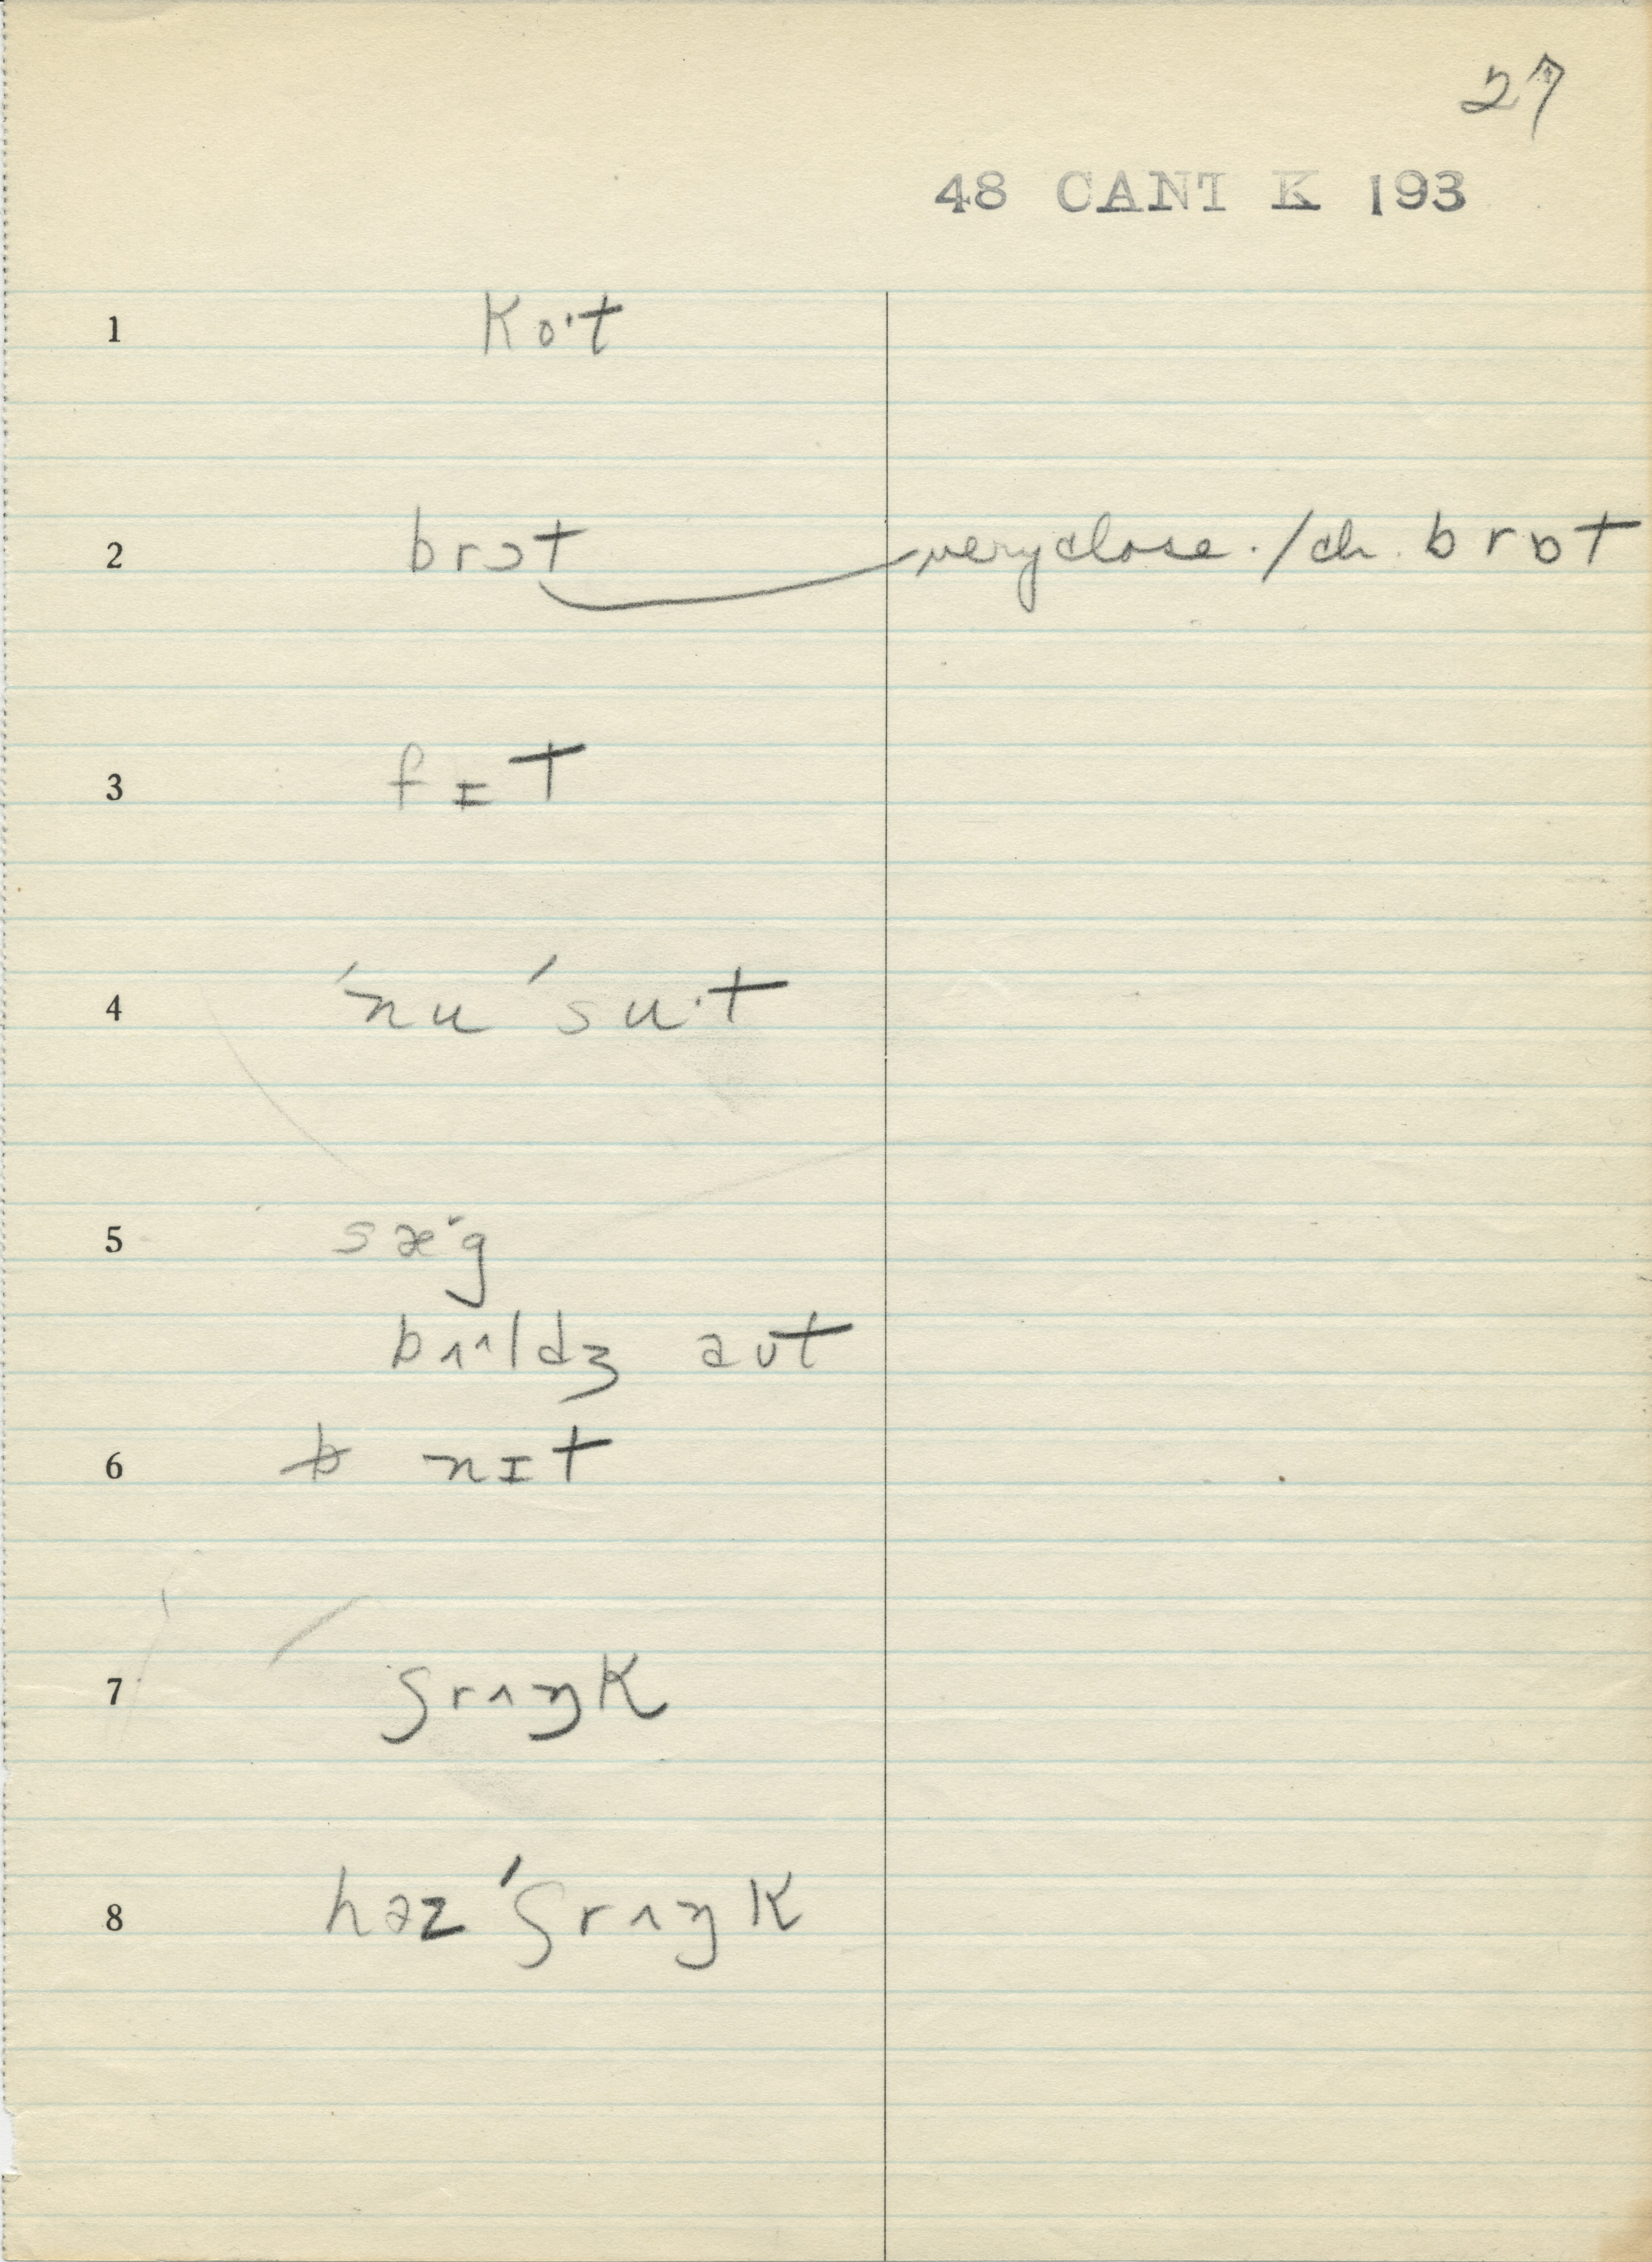 27
48 CANT K 193
1 ko·t
2 brɔt very close. / ch. brɒt
3 fɪt
4 ˈnu ˈsu·t
5 sæ·g
bɪ·ldʒ aʊt
6 b nɪt
7 ʃrɪŋk
8 həz ˈʃrɪŋk